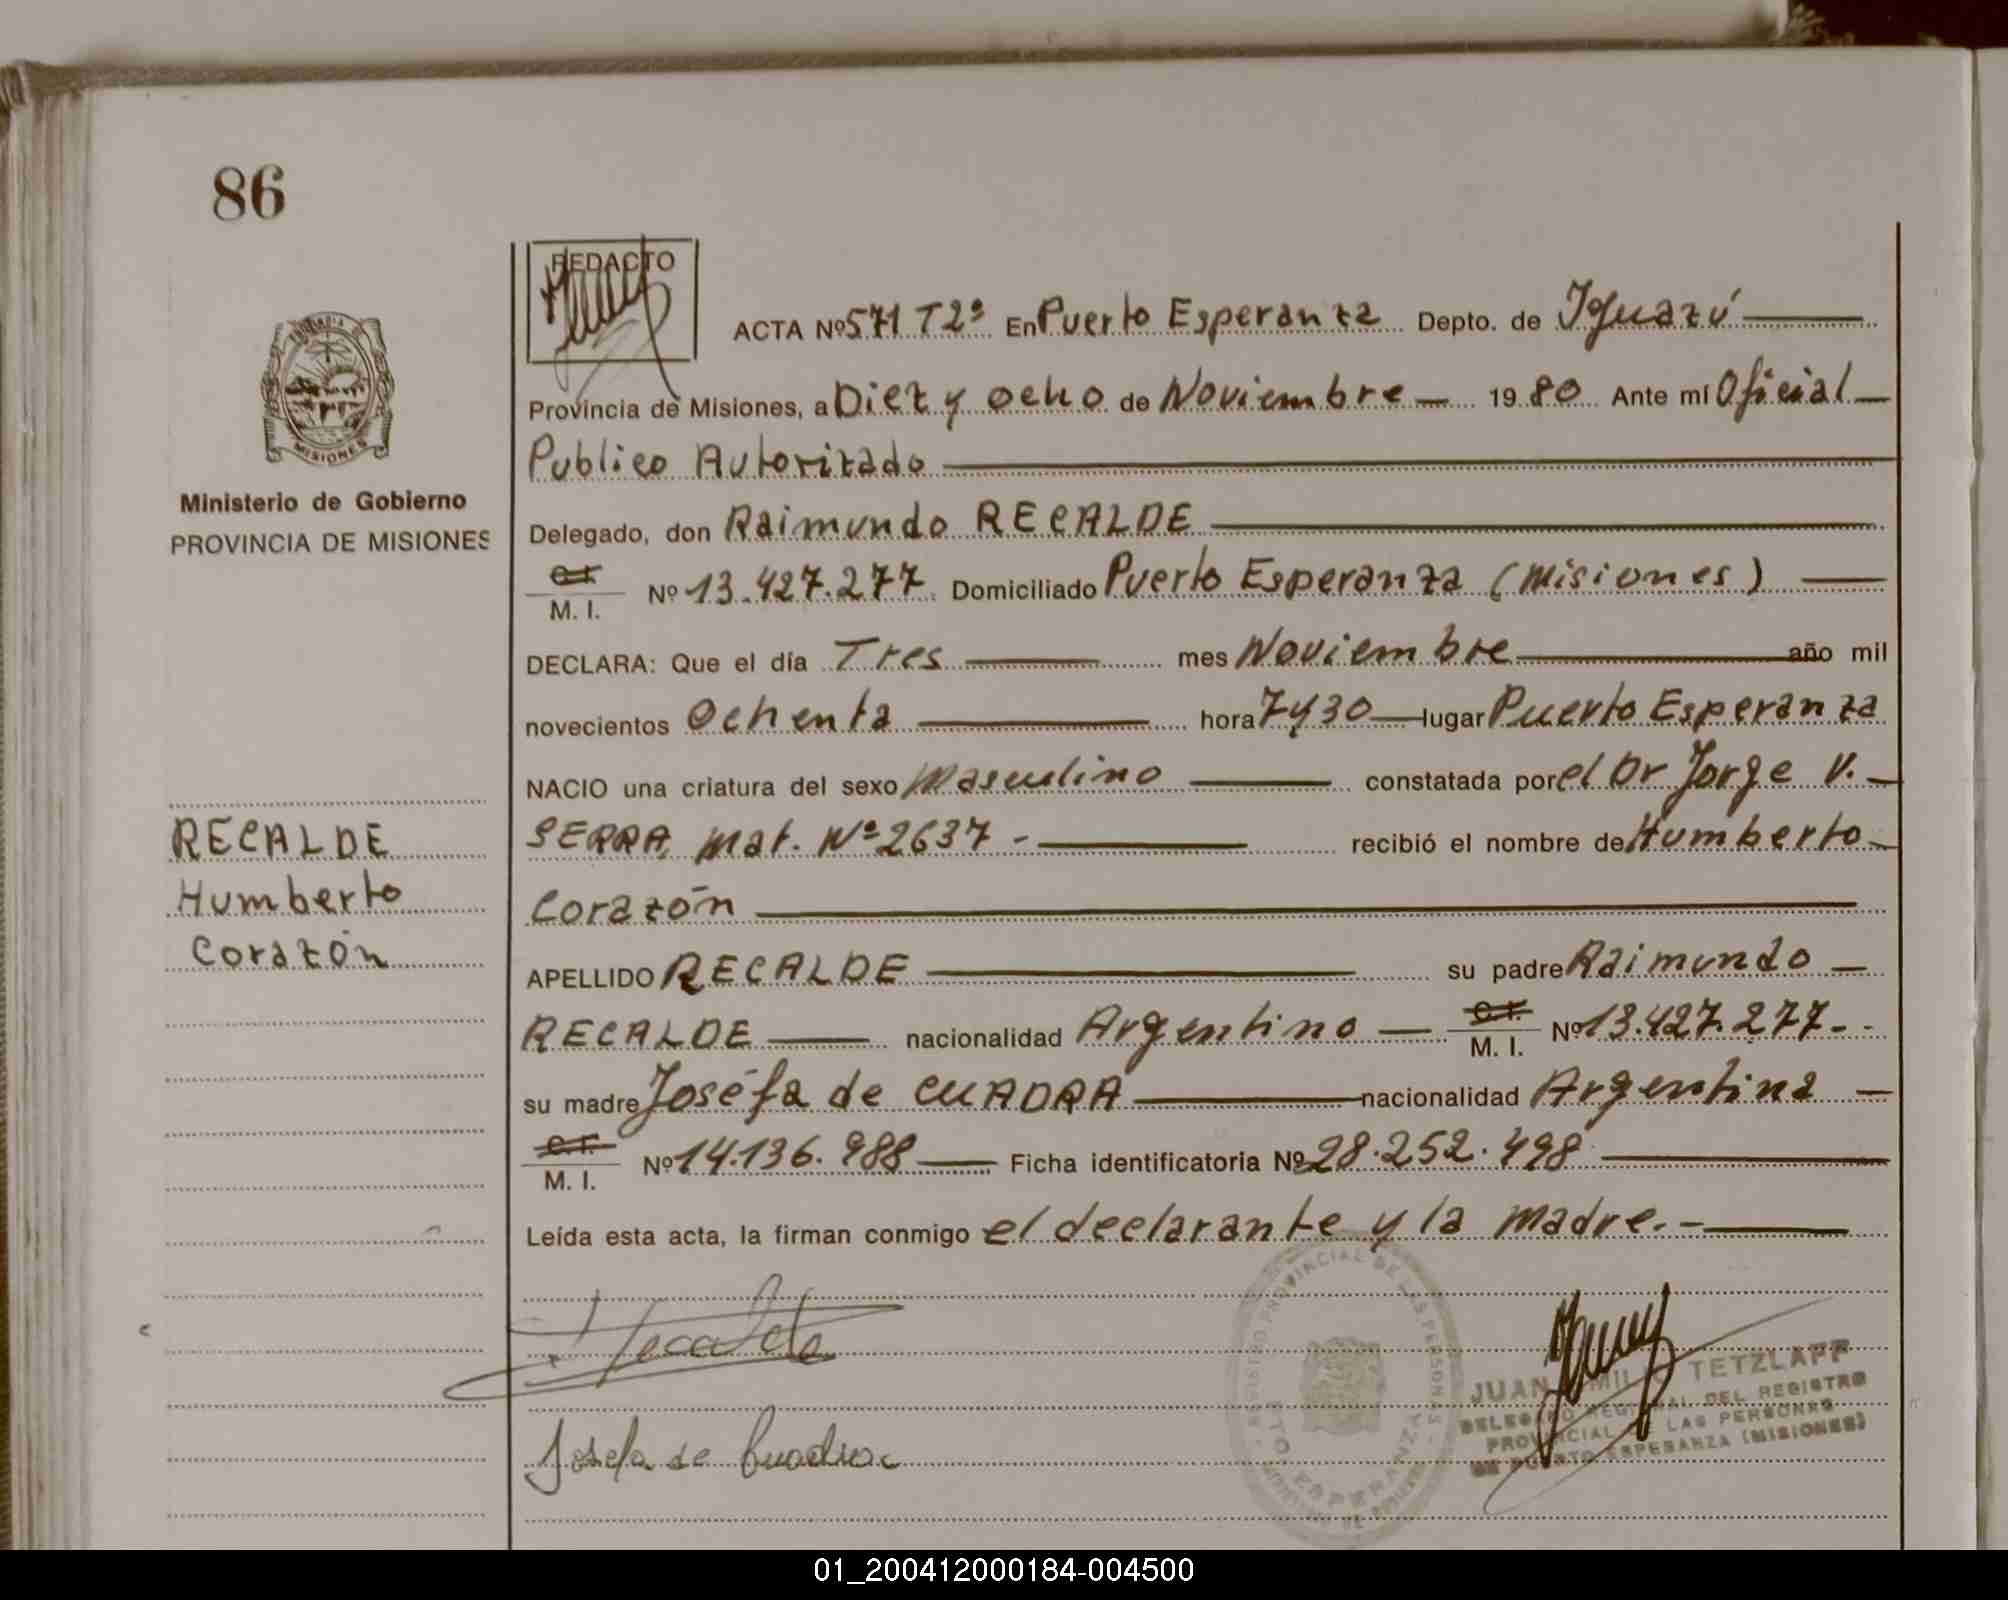 86
REDACTO
ACTA Nº 571 T2º En Puerto Esperanza Depto. de Iguazú
Provincia de Misiones, a Diez y ocho de Noviembre 1980 Ante mí Oficial
Publico Autorizado
MISIONES
Ministerio de Gobierno
PROVINCIA DE MISIONES
Delegado, don Raimundo RECALDE
C.I.
M. I. Nº 13.427.277 Domiciliado Puerto Esperanza (Misiones)
DECLARA: Que el día Tres mes Noviembre año mil
novecientos Ochenta hora 7y30 lugar Puerto Esperanza
NACIO una criatura del sexo Masculino constatada por el Dr Jorge V.
SERRA, Mat. Nº 2637 - recibió el nombre de Humberto
Corazón
RECALDE
Humberto
Corazón
APELLIDO RECALDE su padre Raimundo
RECALDE nacionalidad Argentino C.I. M. I. Nº 13.427.277-
su madre Joséfa de CUADRA nacionalidad Argentina
C.I.
M. I. Nº 14.136.988 Ficha identificatoria Nº 28.252.498
Leída esta acta, la firman conmigo el declarante y la madre.-
Recalde
Josefa de Cuadra
REGISTRO PROVINCIAL DE LAS PERSONAS
PTO. ESPERANZA
JUAN TETZLAFF
DELEGADO REGIONAL DEL REGISTRO
PROVINCIAL LAS PERSONAS
DE PUERTO ESPERANZA (MISIONES)
01_200412000184-004500